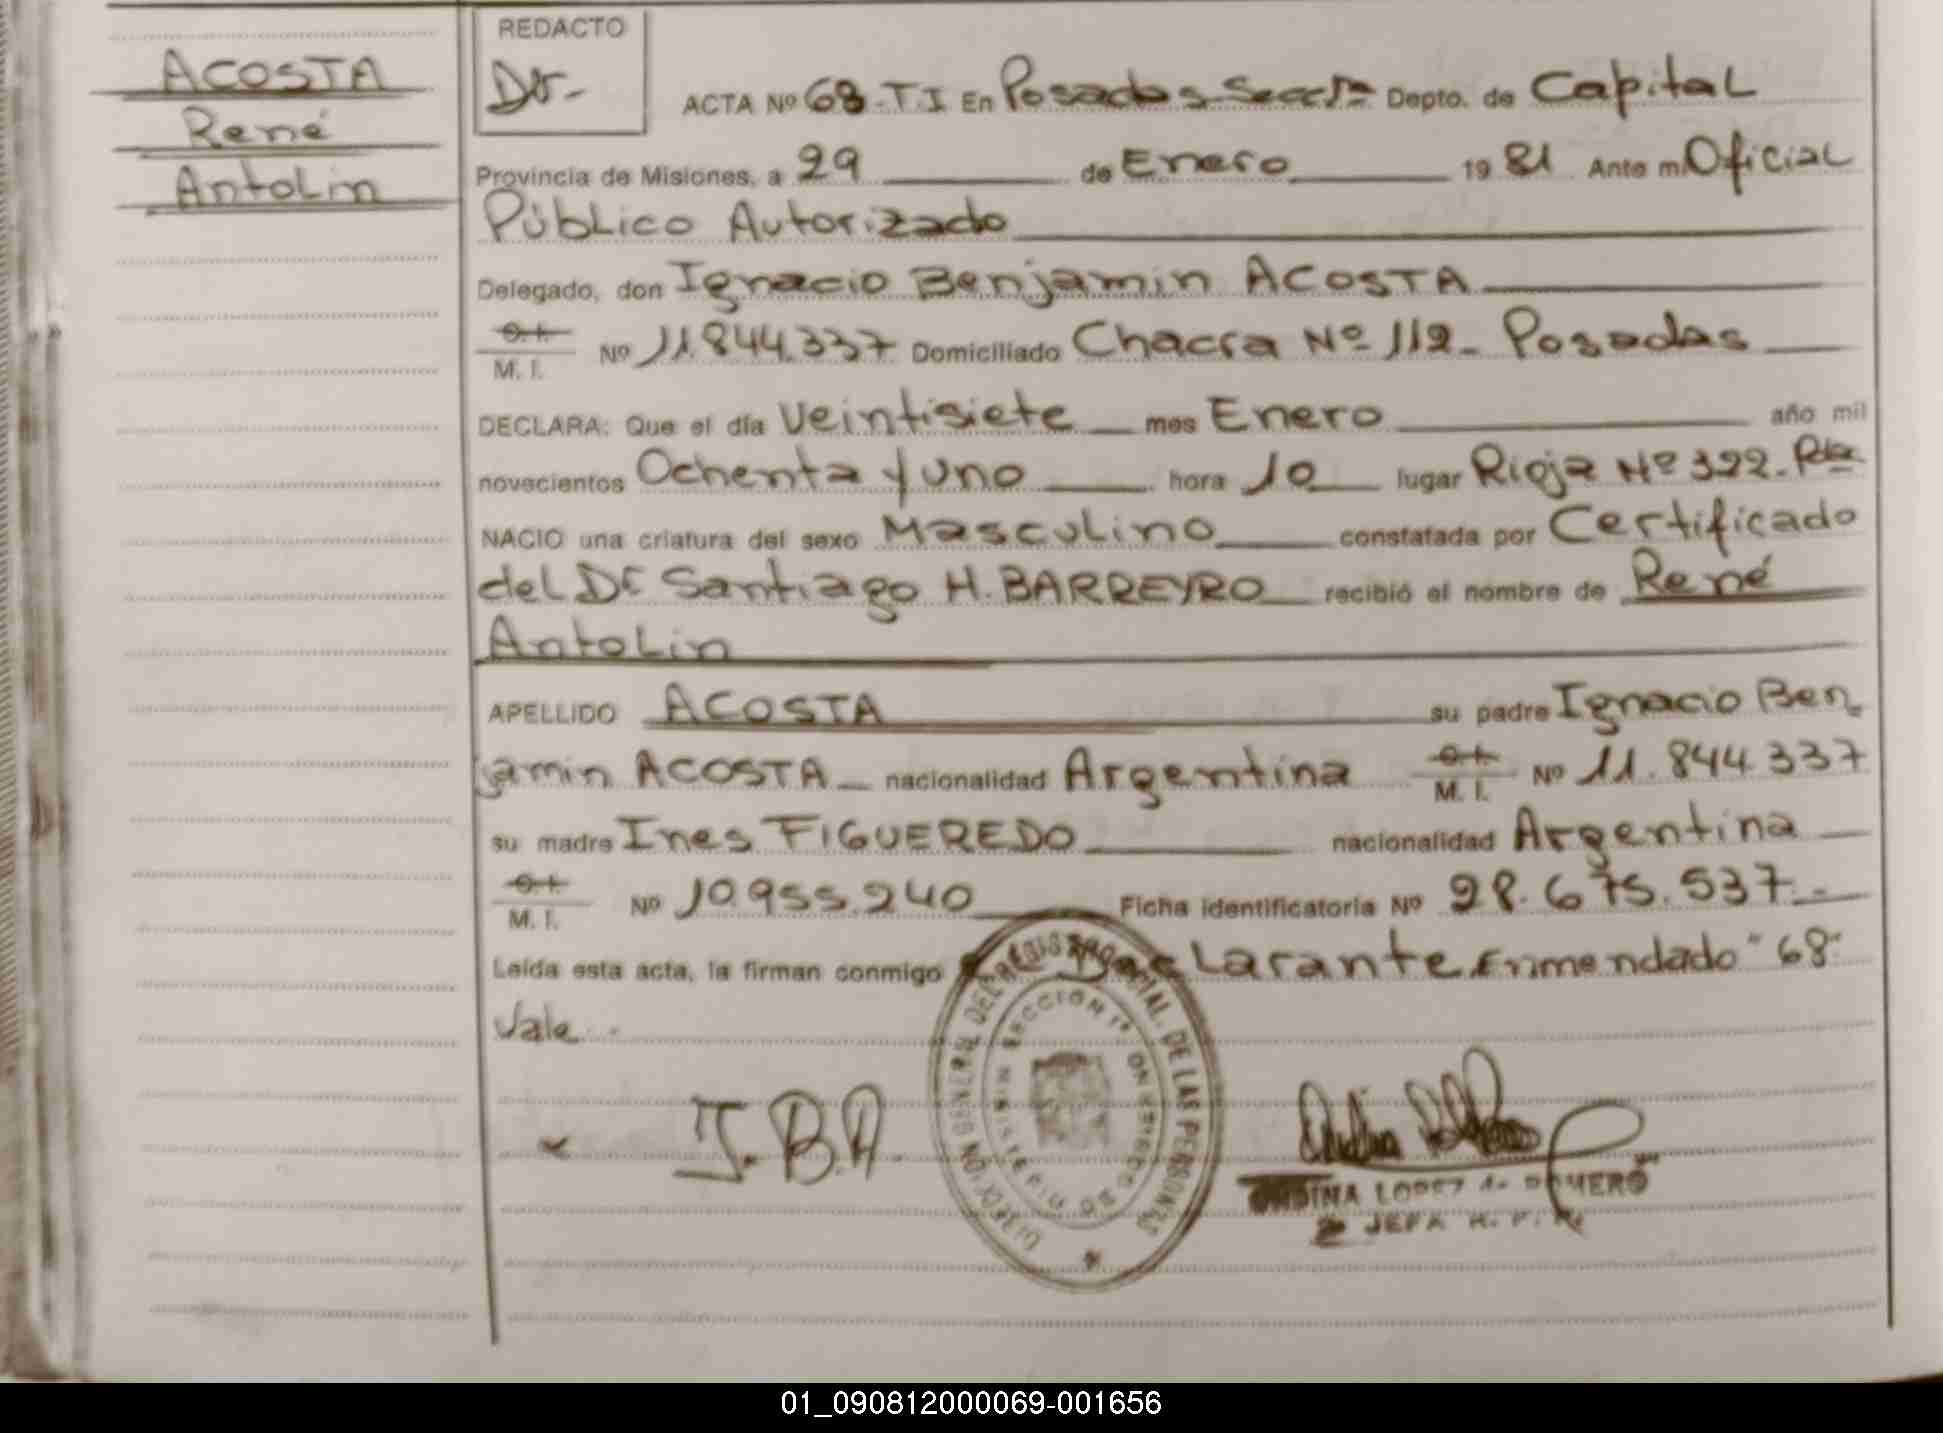 ACOSTA
René
Antolin
REDACTO
Dr.-
ACTA Nº 68-T.I En Posadas Secc 1ª Depto. de Capital
Provincia de Misiones, a 29 de Enero 1981 Ante mi Oficial
Público Autorizado
Delegado, don Ignacio Benjamin ACOSTA
M. I. Nº 11.844.337 Domiciliado Chacra Nº 112- Posadas
DECLARA: Que el día Veintisiete mes Enero año mil
novecientos Ochenta y uno hora 10 lugar Rioja Nº 322- Pdas
NACIO una criatura del sexo Masculino constatada por Certificado
del Dr Santiago H. BARREYRO recibió el nombre de René
Antolin
APELLIDO ACOSTA su padre Ignacio Ben-
jamin ACOSTA nacionalidad Argentina M. I. Nº 11.844.337
su madre Ines FIGUEREDO nacionalidad Argentina
M. I. Nº 10.955.240 Ficha identificatoria Nº 28.675.537.-
Leída esta acta, la firman conmigo Declarante. Enmendado "68"
Vale.-
I.B.A.
LOPEZ de ROMERO
JEFA
01_090812000069-001656